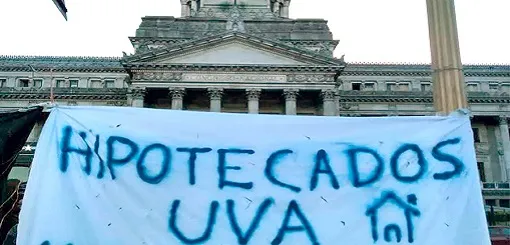 HIPOTECADOS
UVA